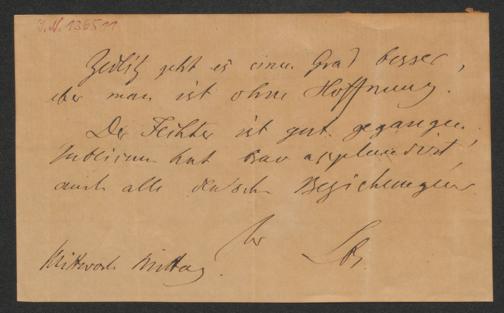 I.N. 136511
Zedlitz geht es einen Grad besser,
aber man ist ohne Hoffnung.
Der Fechter ist gut gegangen,
Publicum hat brav applaudirt,
auch alle Beziehungen
Ihr
Mittwoch Mittag.